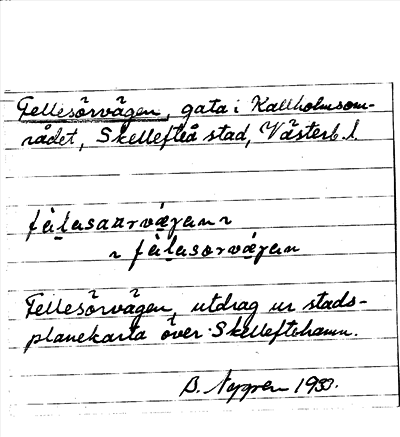 Fellesörvägen, gata i Kallholmsom-
rådet, Skellefteå stad, Västerb. l.
Fellesörvägen, utdrag ur stads-
planekarta över Skelleftehamn.
B. Nygren 1933.